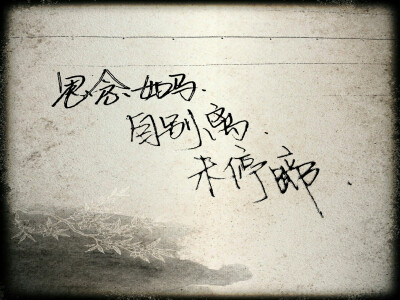 思念如马.
自别离.
未停蹄